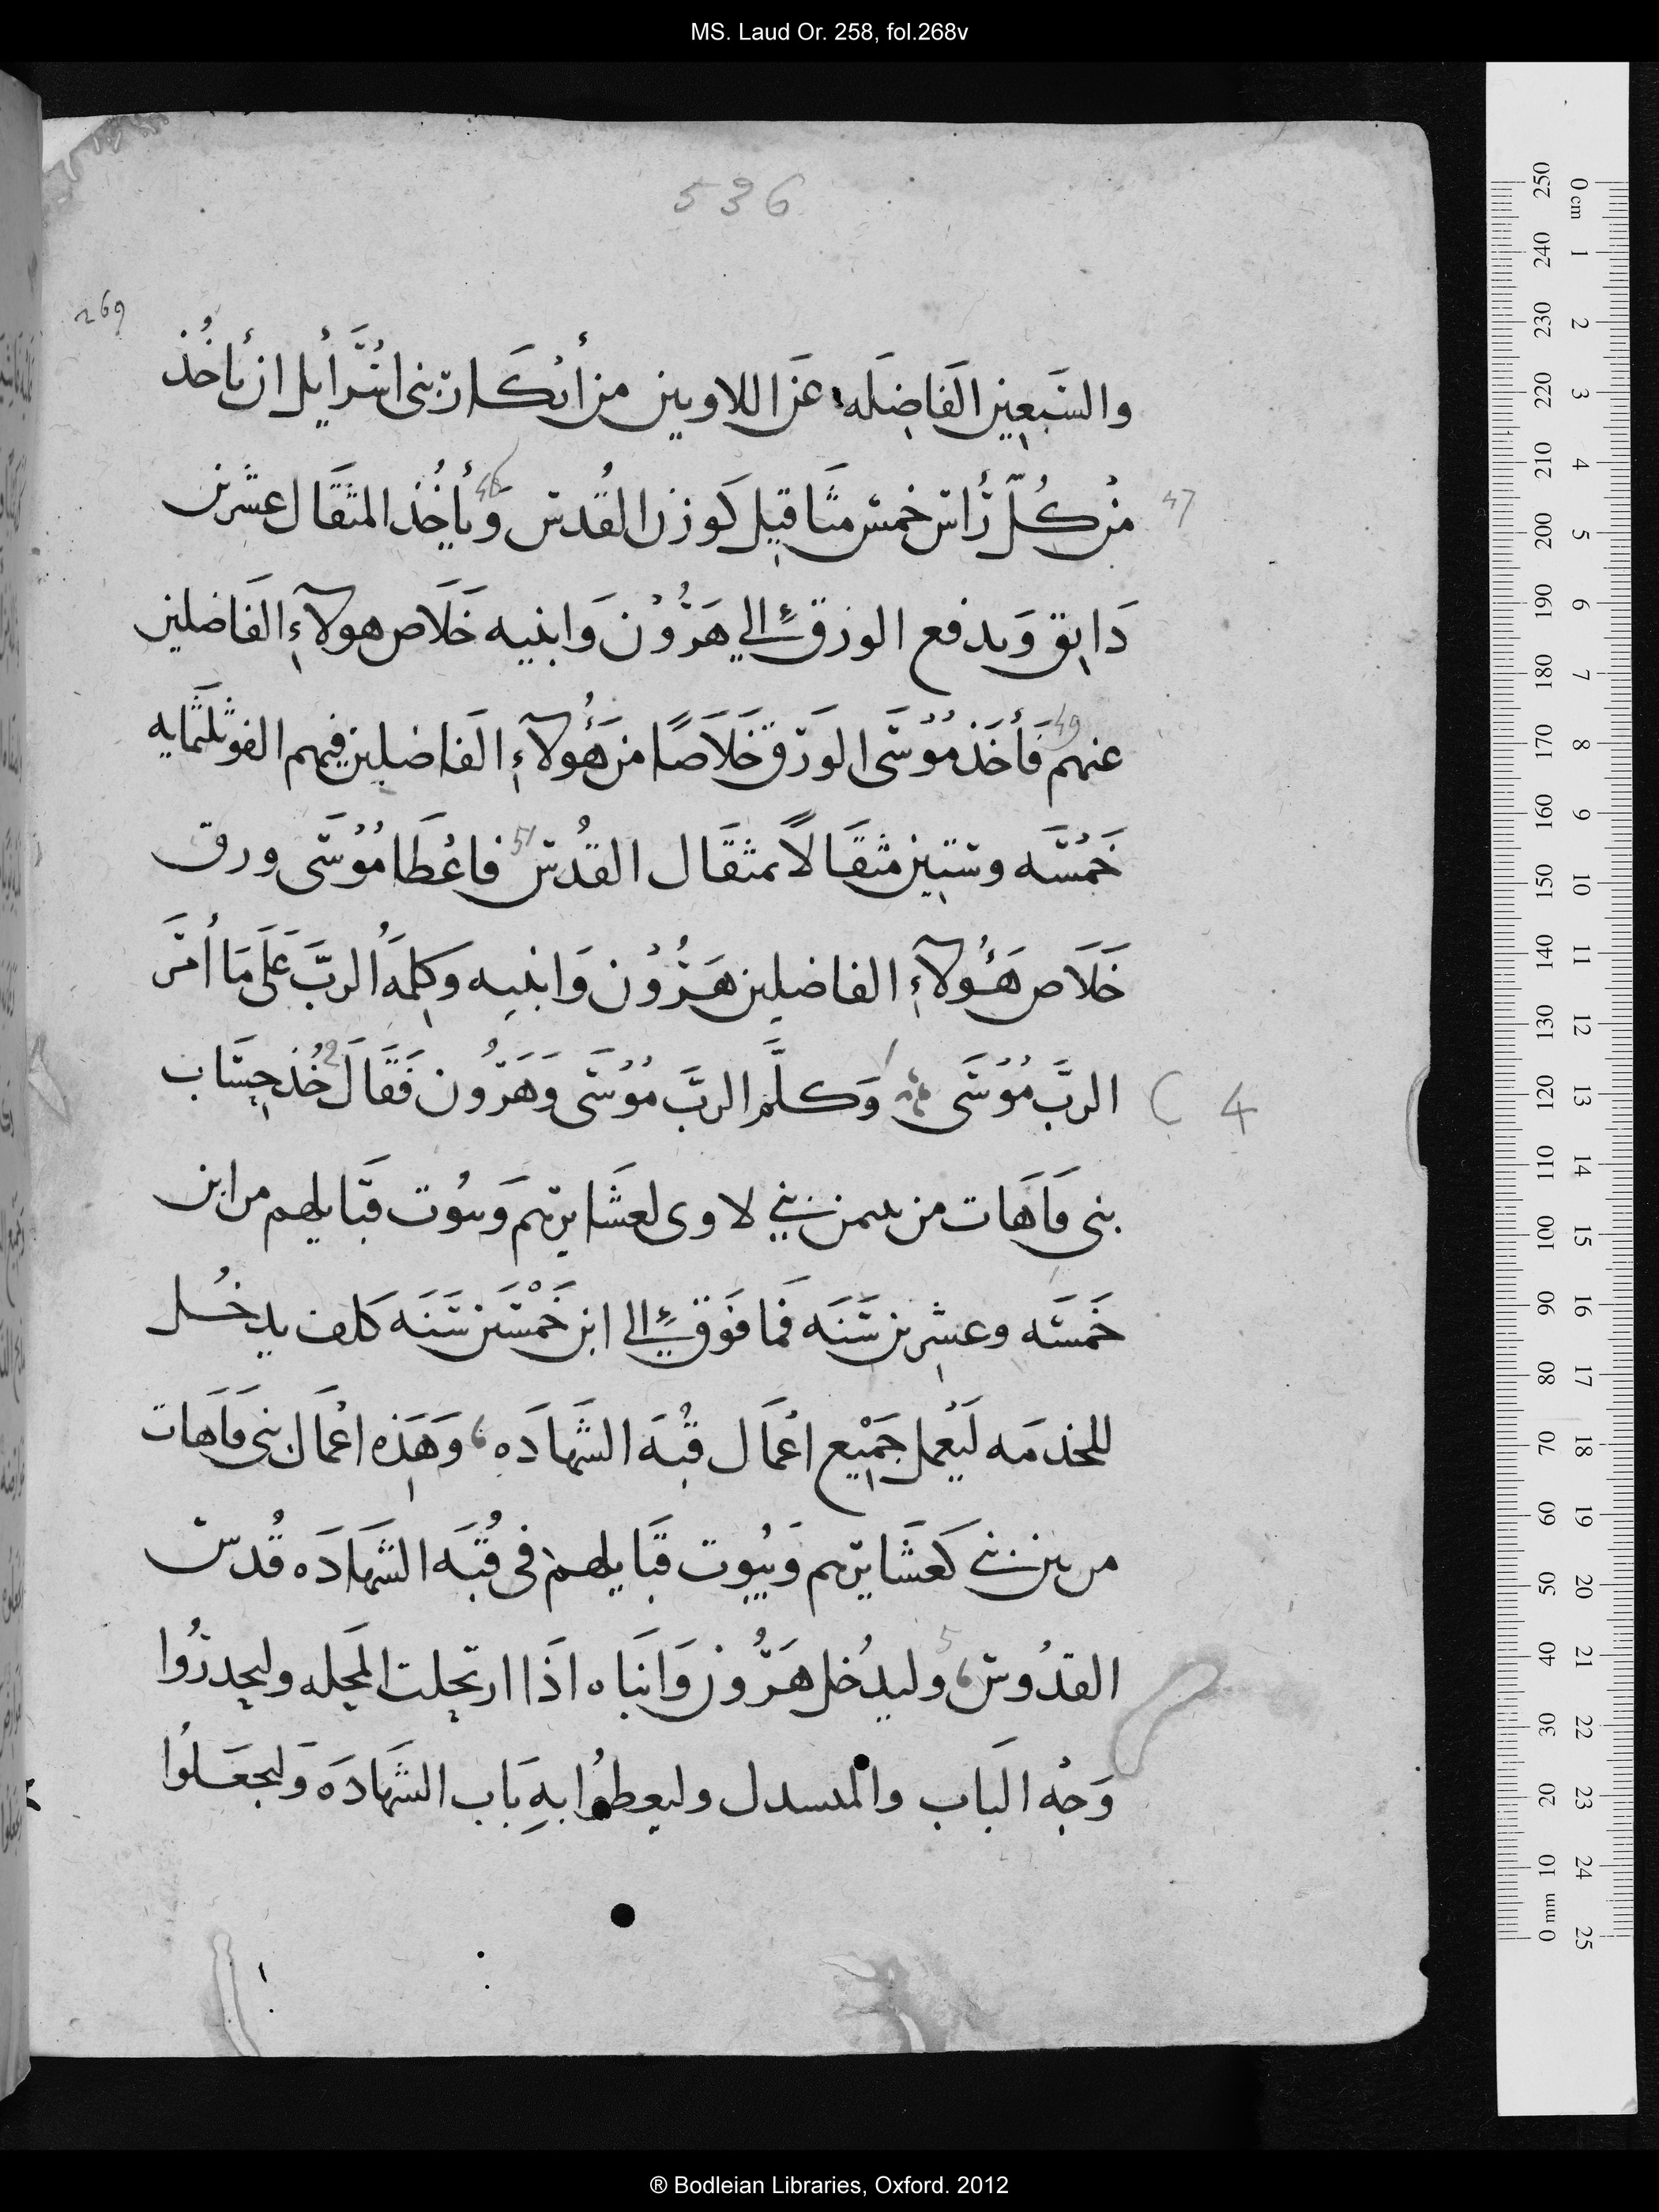 MS. Laud Or. 258, fol.268v
536
269
والسَبعين الفَاضِلَه عَن اللاويين من أبكَار بنى اسْرَايل ان يأخُذ
47
مِن كُلّ رَاس خمس مثَاقيل كَوزن القُدس 48 وَيأخُذ المثقَال عشرين
دَانق وَيدفع الورق الي هَرُوْن وَابنيه خَلَاص هولآءِ الفَاضلين
عنهم 49 فَأخَذ مُوْسَى الوَرق خَلَاصًا من هَؤُلآءِ الفَاضلين فيهم الف وثلثمايه
خَمْسَه وستين مثقَالاً بمثقَال القُدس 51 فاعْطَا مُوْسَى ورق
خَلَاص هَؤُلآءِ الفاضلين هَرُوْن وَابنيه وكلمَه الربَّ عَلَى مَا أمَر
4
الربَّ مُوْسَى 1 وَكلَّم الربَّ مُوْسَى وَهَرُون فَقَالَ 2 خُذ حِسَاب
بنى قَاهَات من بين بني لاوى لعشَايرتهم وَبيُوت قبَايلهم من ابن
خَمسَه وعشرين سَنَه فَمَا فَوق الي ابن خَمْسَين سَنَه كلمن يدخُل
للخدمَه لَيَعمل جَميْع اعْمَال قبُه الشَهادَه وَهَذه اعْمَال بنى قَاهَات
من بين بني كعَشَايرتهم وَبيُوت قبَايلهم في قُبَه الشَهادَه قُدس
القدُوس 5 وليدخُل هَرُون وَابنَاه اذَا ارتحلت المحله وليحدرُوا
وَجْه البَاب والمسدل وليعطوا بهِ بَاب الشَهادَه وَليجعَلُوا
250 240 230 220 210 200 190 180 170 160 150 140 130 120 110 100 90 80 70 60 50 40 30 20 10 0 mm
0 cm 1 2 3 4 5 6 7 8 9 10 11 12 13 14 15 16 17 18 19 20 21 22 23 24 25
® Bodleian Libraries, Oxford. 2012